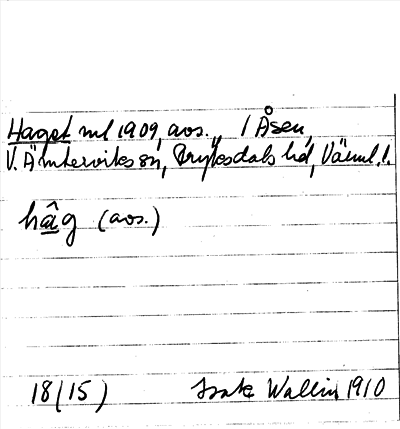 Haget ml 1909, avs., / Åsen,
V. Ämterviks sn, Fryksdals hd, Värml. l.
hâg (avs.)
18(15) Isak Wallin 1910